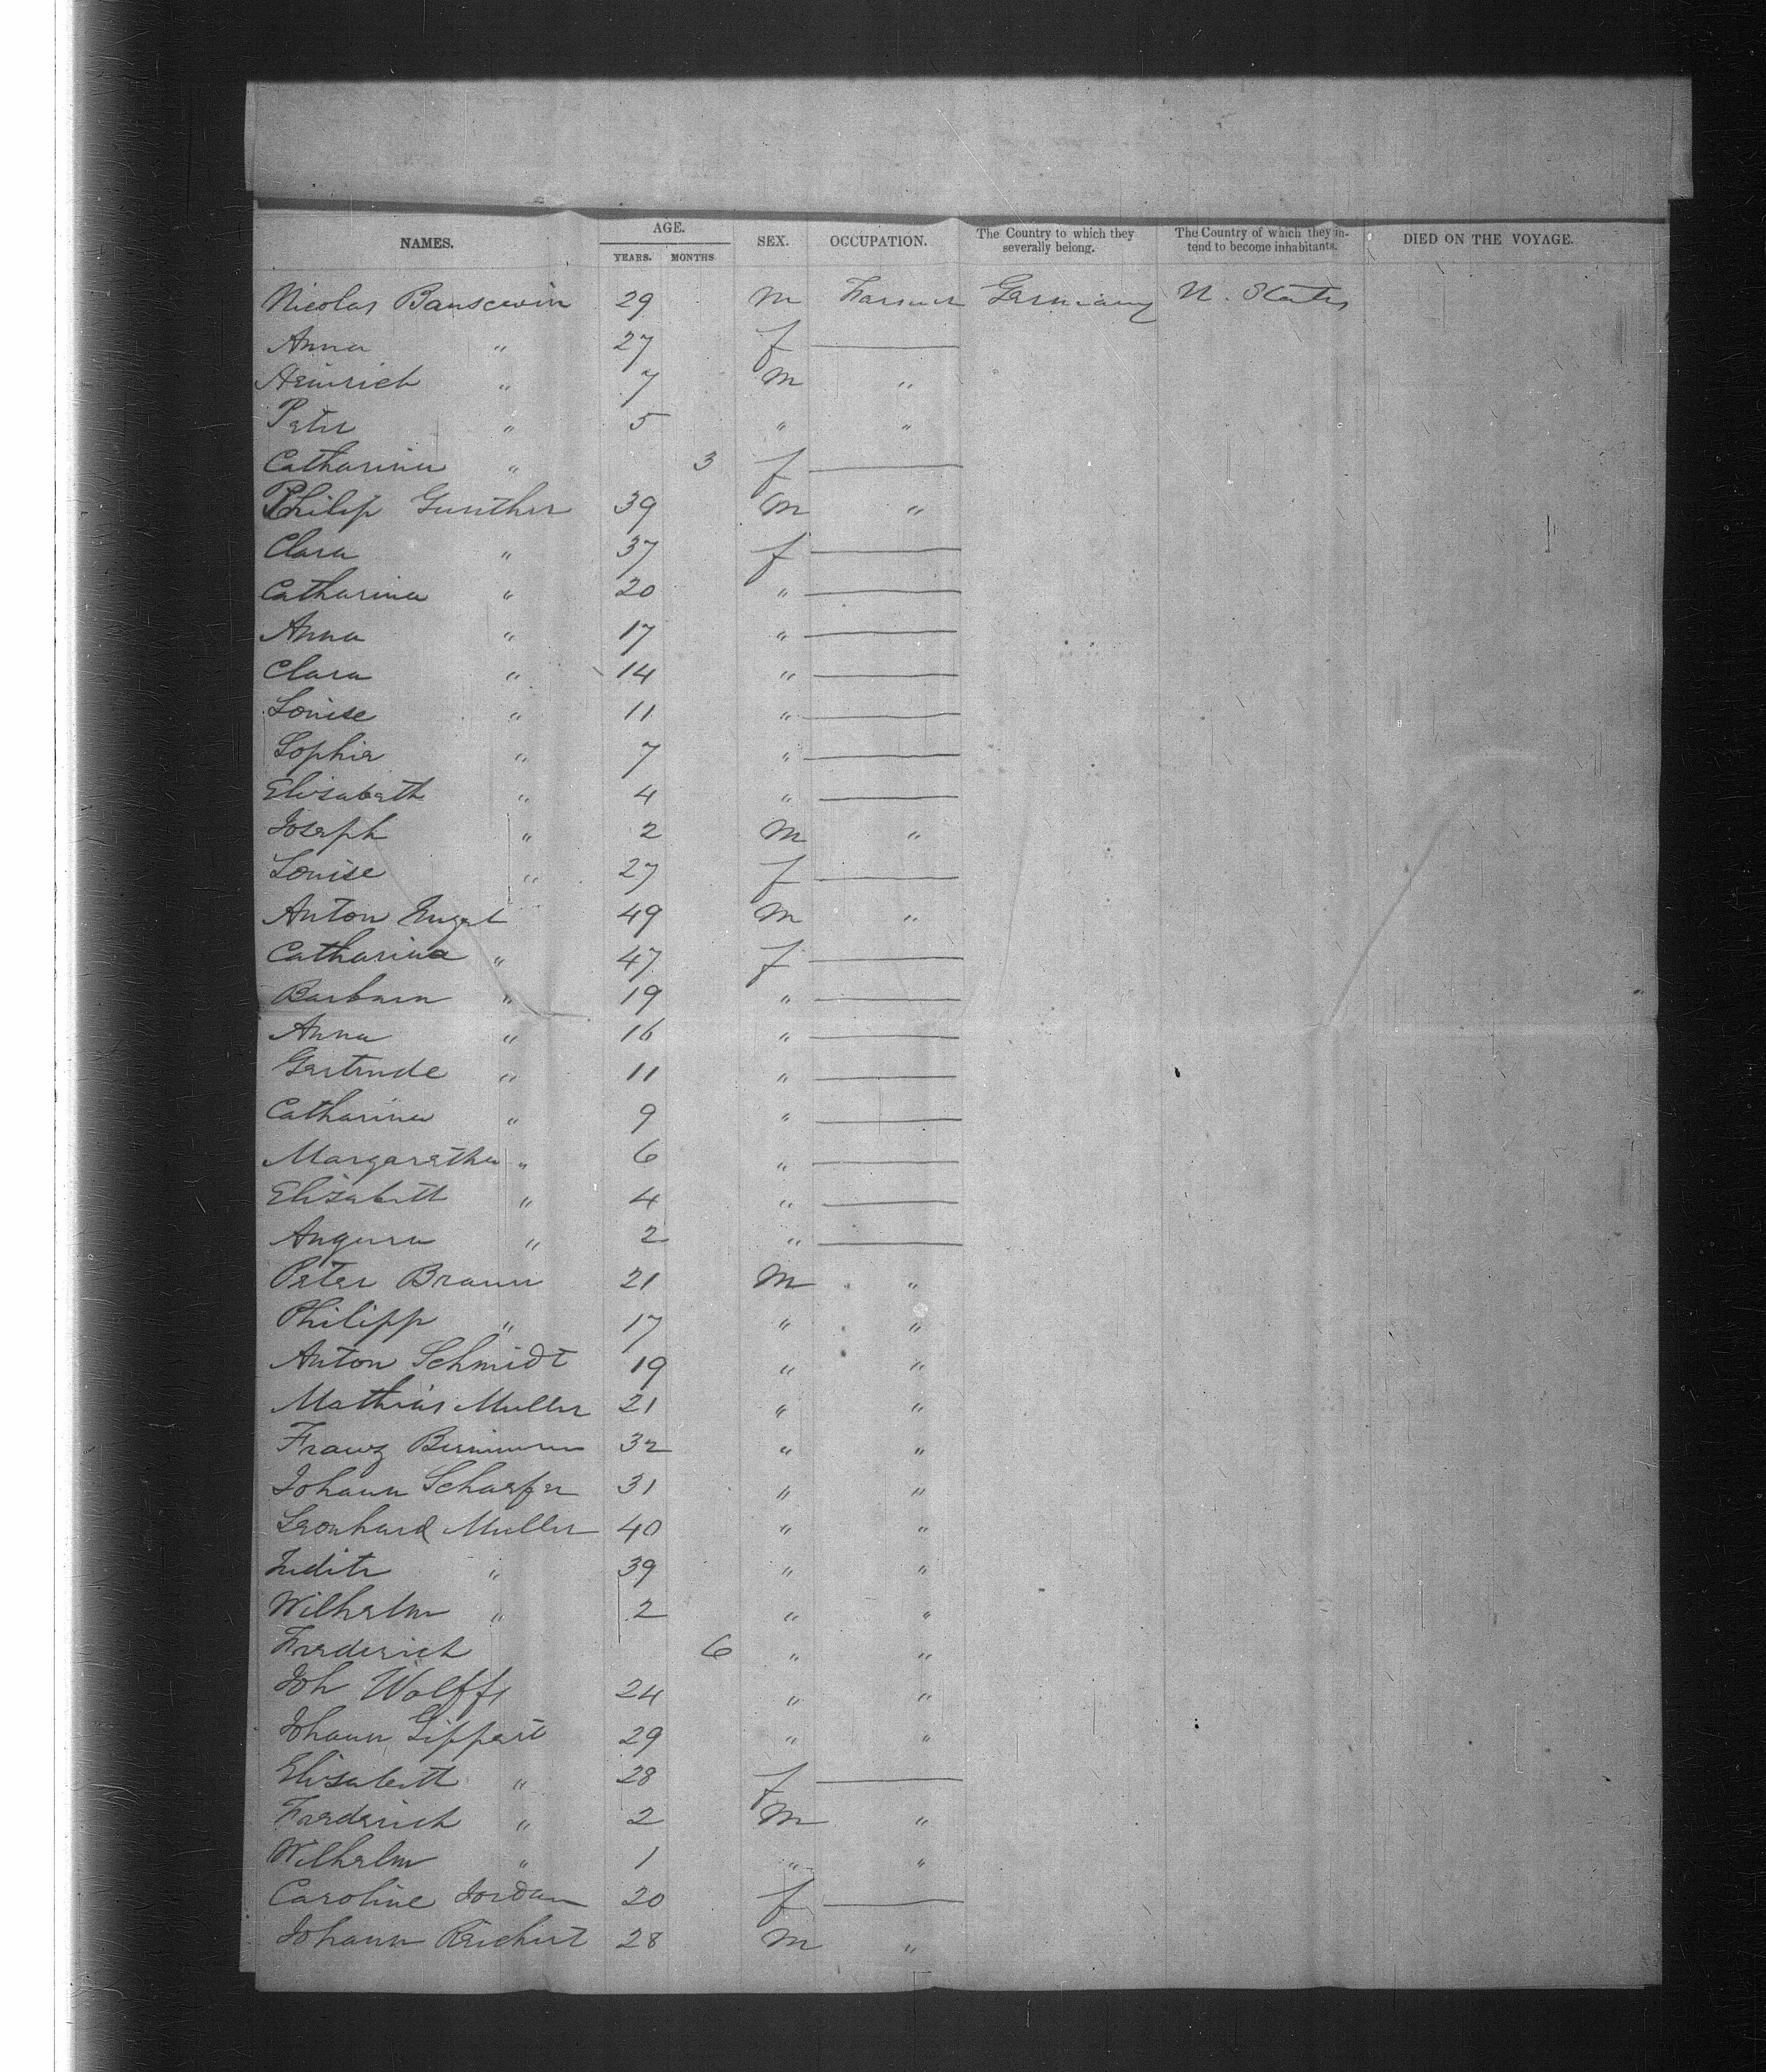 NAMES. AGE. SEX. OCCUPATION. The Country to which they severally belong. The Country of which they intend to become inhabitants. DIED ON THE VOYAGE.
YEARS. MONTHS
Nicolas 29 m Farmer Germany U. States
Anna " 27 f —
Heinrich " 7 m "
Peter " 5 " "
Catharina " 3 f —
Philip Gunther 39 m "
Clara " 37 f —
Catharina " 20 " —
Anna " 17 " —
Clara " 14 " —
Louise " 11 " —
Sophie " 7 " —
Elisabeth " 4 " —
Joseph " 2 m "
Louise " 27 f —
Anton 49 m "
Catharina " 47 f —
Barbara " 19 " —
Anna " 16 " —
Gertrude " 11 " —
Catharina " 9 " —
Margaretha " 6 " —
Elisabeth " 4 " —
" 2 " —
Peter Braun 21 m "
Philipp " 17 " "
Anton Schmidt 19 " "
Mathias Muller 21 " "
Franz 32 " "
Johann Schaefer 31 " "
Leonhard Muller 40 " "
Judith " 39 " "
Wilhelm " 2 " "
Frederich 6 " "
Joh Wolff 24 " "
Johann Lippert 29 " "
Elisabeth " 28 f —
Frederich " 2 m "
Wilhelm " 1 " "
Caroline Jordan 20 f —
Johann Reichert 28 m "